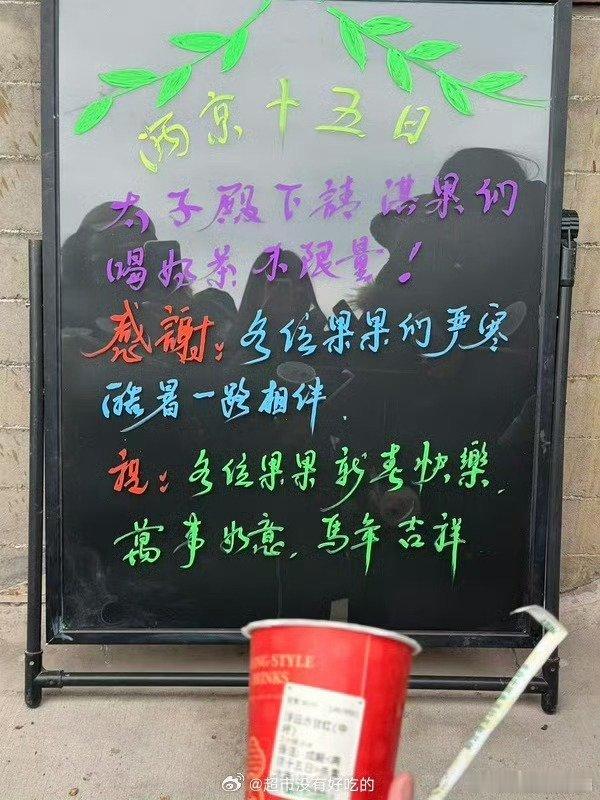 两京十五日
太子殿下請淇果们
喝奶茶不限量！
感謝：各位果果们严寒
酷暑一路相伴.
祝：各位果果新春快樂.
萬事如意.馬年吉祥
NG-STYLE
INKS
@超市没有好吃的